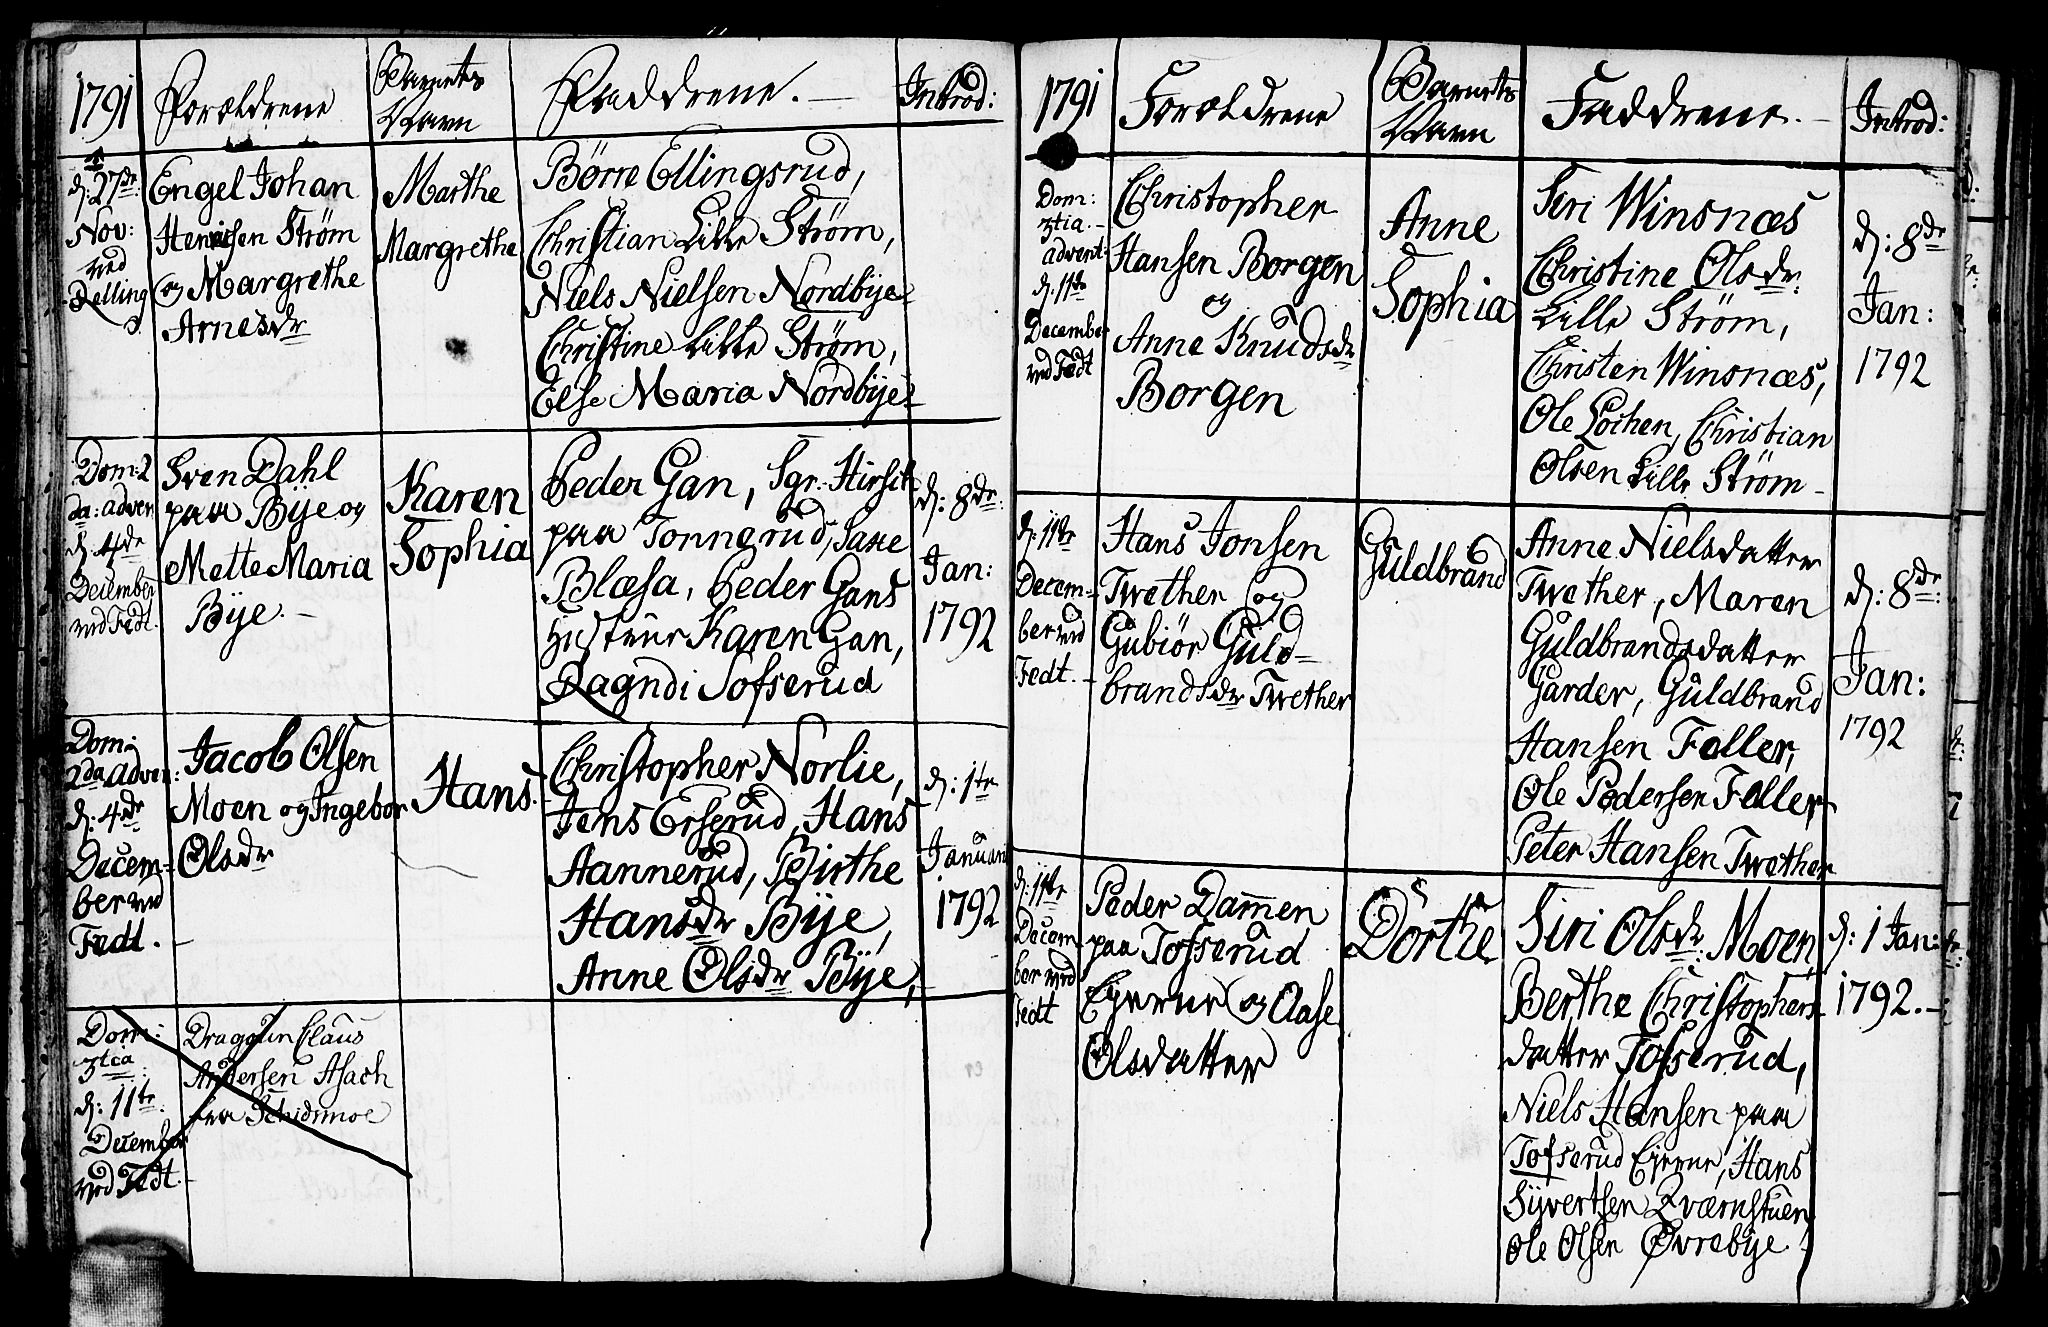 1791
Forældrene
Barnets
Navn
Faddrene. —
Introd:
d: 27de
Nov:
ved
Relling
Engel Johan
Henrichsen Strøm
og Margrethe
Arnesdr
Marthe
Margrethe
Børre Ellingsrud,
Christian Lille Strøm,
Niels Nielsen Nordbye
Christine Lille Strøm,
Else Maria Nordbye
Dom: 2
da: adven
d: 4de
December
ved Fedt.
Sven Dahl
paa Bye og
Mette Maria
Bye. —
Karen
Sophia
Peder Gan, Sgr. Hirsch
paa Tonnerud, Saxe
Blæsa, Peder Gans
Hustrue Karen Gan,
Ragndi Tofserud
d: 8de:
Jan:
1792
Dom:
2da adven:
d: 4de
Decem-
ber ved
Fedt. —
Jacob Olsen
Moen og Ingebor
Olsdr
Hans.
Christopher Norlie,
Jens Erserud, Hans
Aannerud, Birthe
Hansdr Bye,
Anne Olsdr Bye,
d: 1te
Januari
1792
Dom:
3tia
d: 11te
December
ved Fedt.
Dragoun Claus
Andersen Asach
fra Schidsmoe
1791
Forældrene
Barnets
Navn
Faddrene. —
Introd:
Dom:
3tia. —
advent:
d: 11te
December
ved Fedt
Christopher
Hansen Borgen
og
Anne Knudsdr
Borgen
Anne
Sophia
Siri Winsnæs
Christine Olsdr:
Lille Strøm,
Christen Winsnæs,
Ole Lochen, Christian
Olsen Lille Strøm —
d: 8de
Jan:
1792
d: 11te
Decem-
ber ved
Fedt. —
Hans Jonsen
Twether og
Gubiør Guld-
brandsdr Twether
Guldbrand
Anne Nielsdatter
Twether, Maren
Guldbrandsdatter
Garder, Guldbrand
Hansen Faller,
Ole Pedersen Faller
Peter Hansen Twether
d: 8de:
Jan:
1792
d: 11te
Decem
ber ved
Fedt
Peder Dammen
paa Tofserud
Eyerne og Olase
Olsdatter
Dorthe
Siri Olsdr: Moen,
Berthe Christophers
datter Tofserud,
Niels Hansen paa
Tofserud Eyerne, Hans
Syvertsen Qværnstuen
Ole Olsen Øvrebye.
d: 1 Jan:
1792. —